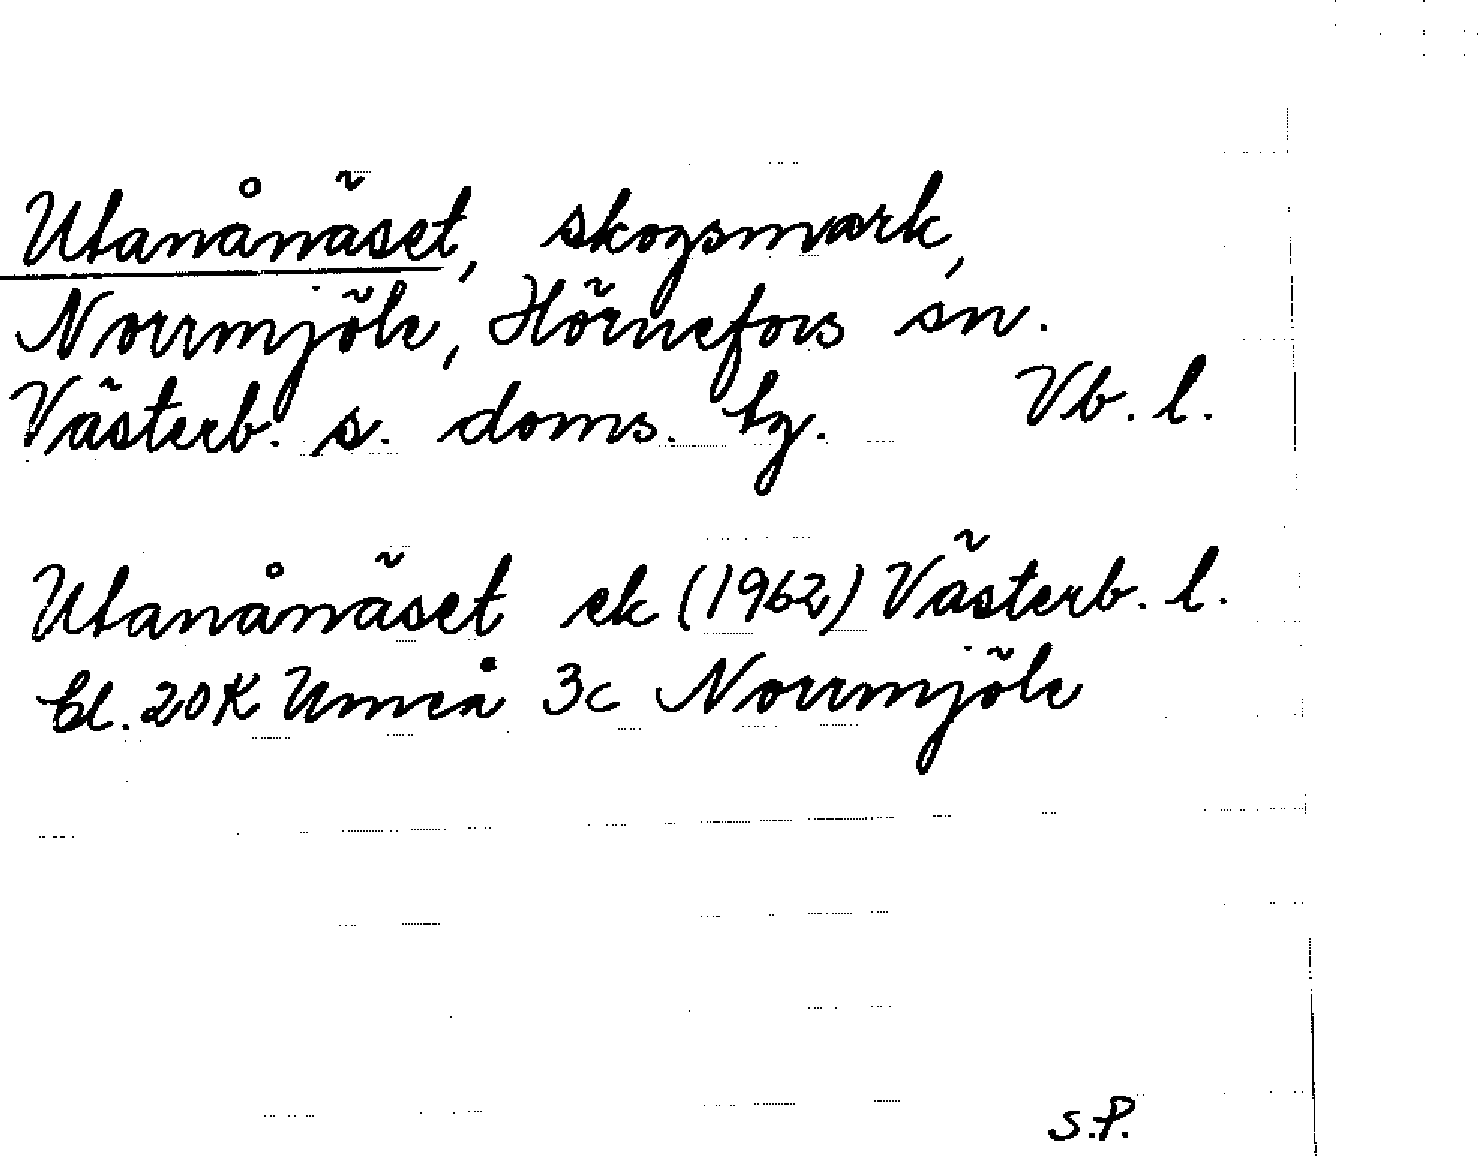 Utanånäset, skogsmark,
Norrmjöle, Hörnefors sn.
Västerb. s. doms. tg. Vb. l.
Utanånäset ek (1962) Västerb. l.
bl. 20K Umeå 3c Norrmjöle
S.P.